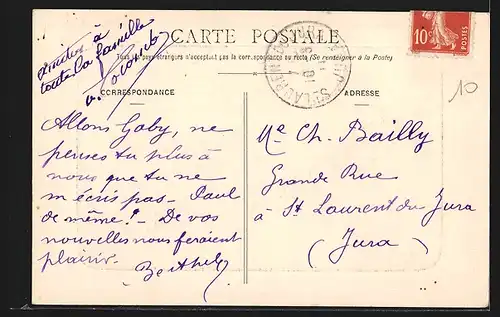 CARTE POSTALE
Tous les pays étrangers n'acceptent pas la correspondance au recto (Se renseigner à la Poste)
CORRESPONDANCE
ADRESSE
amitiés à
toute la famille
Allons Gaby, ne
penses tu plus à
nous que tu ne
m'écris pas - Paul
de même! - De vos
nouvelles nous feraient
plaisir.
Berthe
Me Ch. Bailly
Grande Rue
à St Laurent du Jura
(Jura)
10c
10